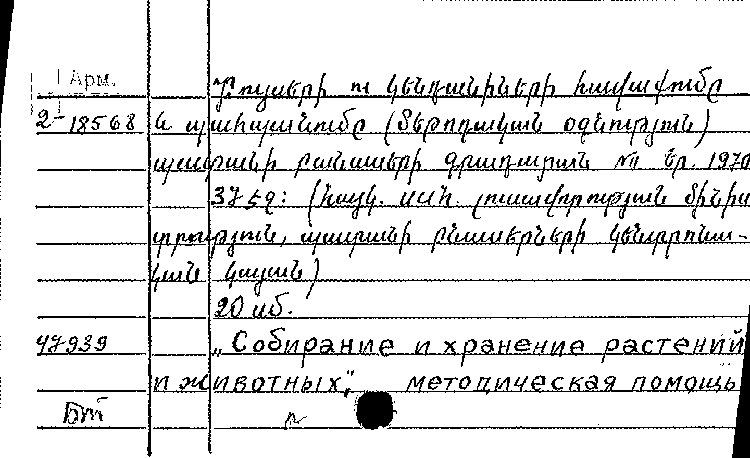 Арм.
Բույսերի ու կենդանիների հավաքումը
2-18568 և պահպանումը (մեթոդական օգնություն)
պատանի բնասերի գրադարան № Եր. 1970
37 էջ: (Հայկ. ՍՍՀ. լուսավորության մինիս
տրություն, պատանի բնասերների կենտրոնա-
կան կայան)
20 կոպ.
47939 „Собирание и хранение растений
и животных", методическая помощь